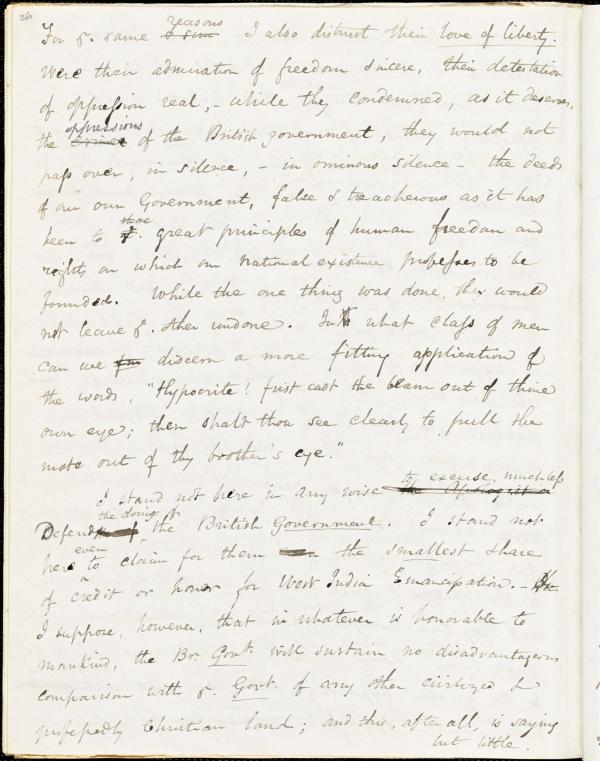 26
For ye. same reasons I also distrust their love of liberty.
Were their admiration of freedom sincere, their detestation
of oppression real, - while they condemned, as it deserves,
the oppressions of the British government, they would not
pass over, in silence, - in ominous silence - the deeds
of our own Government, false & treacherous as it has
been to those great principles of human freedom and
rights on which our national existence professes to be
founded. While the one thing was done, they would
not leave ye. other undone. In what class of men
can we discern a more fitting application of
the words, "Hypocrite! first cast the beam out of thine
own eye; then shalt thou see clearly to pull the
mote out of thy brother's eye."
I stand not here in any wise to excuse, much less
Defend the doings of the British Government. I stand not
here even to claim for them the smallest share
of credit or honor for West India Emancipation. -
I suppose, however, that in whatever is honorable to
mankind, the Br. Govt. will sustain no disadvantageous
comparison with ye. Govt. of any other civilized &
professedly Christian land; and this, after all, is saying
but little.